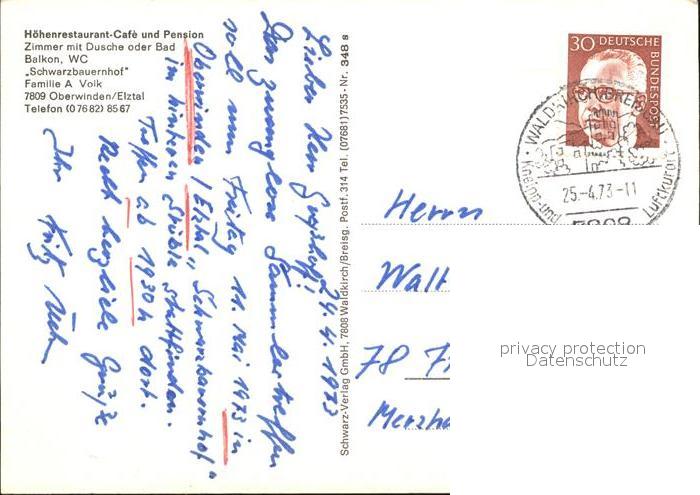 Höhenrestaurant-Cafè und Pension
Zimmer mit Dusche oder Bad
Balkon, WC
„Schwarzbauernhof"
Familie A Volk
7809 Oberwinden/Elztal
Telefon (07682) 8567
24.4.1973
Lieber Herr
Das zwanglose Sammlertreffen
soll nun Freitag 11. Mai 1973 in
Oberwinden / Elztal „Schwarzbauernhof"
im hinteren Stüble stattfinden.
Treffen ab 1930 h dort.
Recht herzliche Grüße
Ihr Fritz
Schwarz-Verlag GmbH, 7808 Waldkirch/Breisg. Postf. 314 Tel. (07681) 7535 - Nr. 348 s
30 DEUTSCHE BUNDESPOST
WALDKIRCH (BREISGAU)
25.-4.73-11
Kneipp- und Luftkurort
7808
Herrn
Walt
78
Merzha
privacy protection
Datenschutz